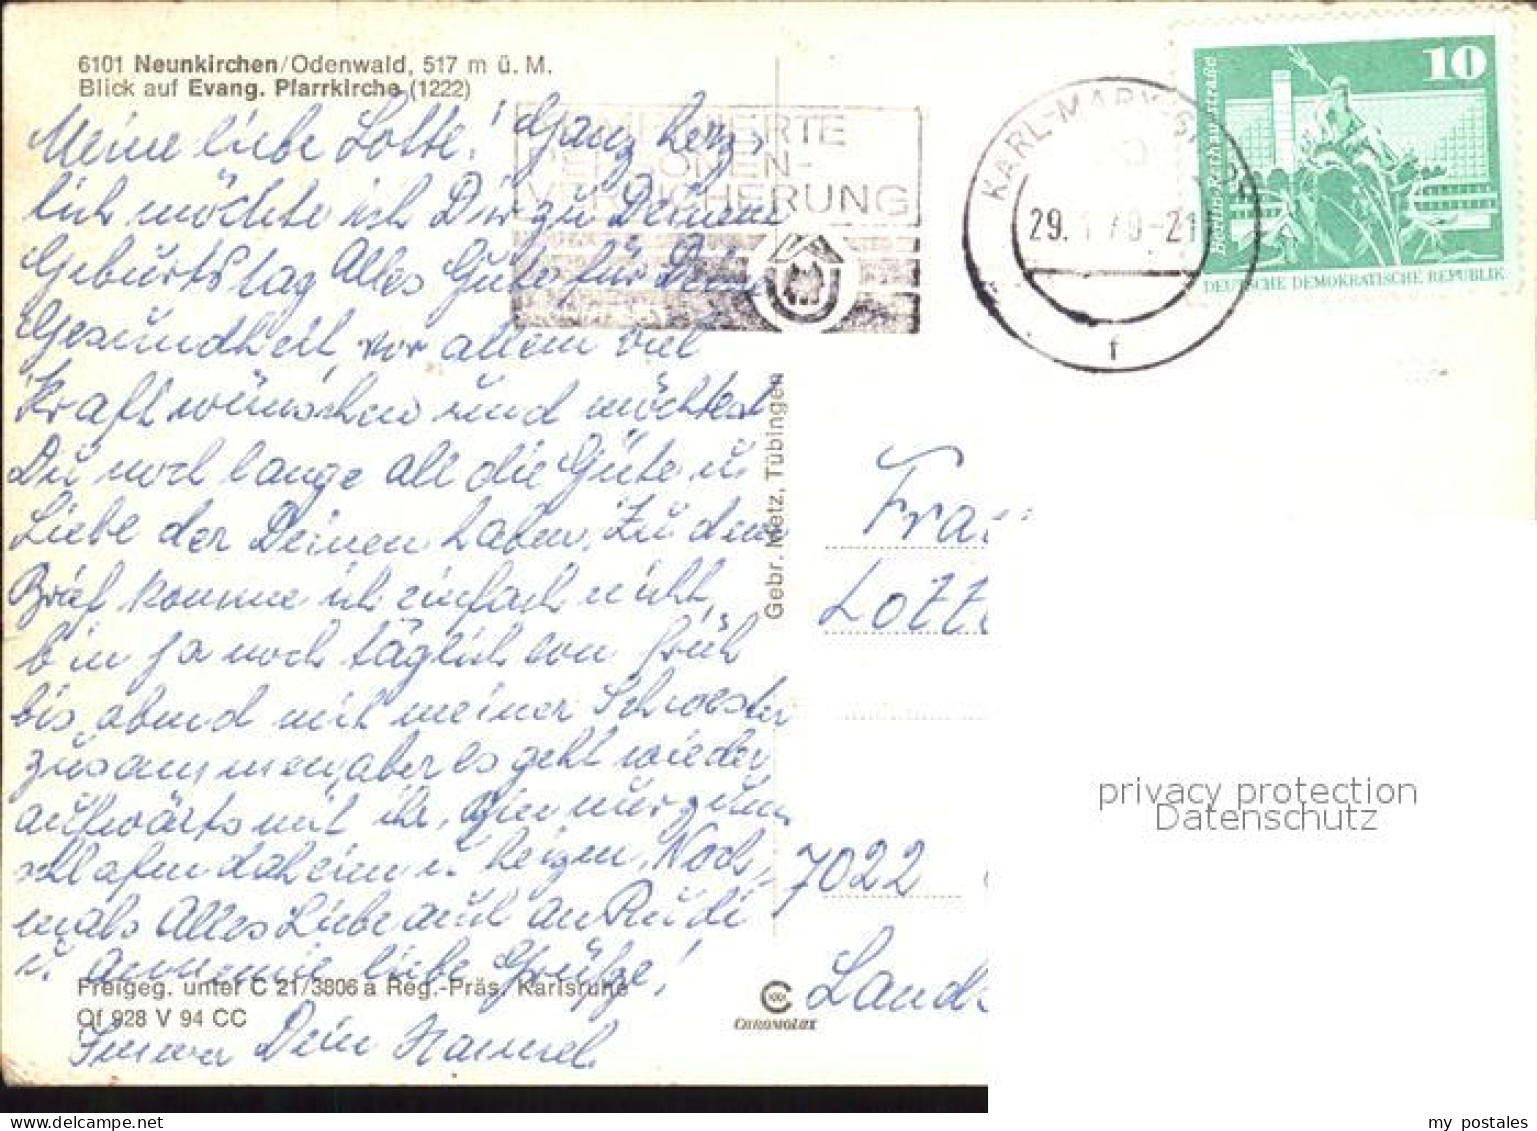 6101 Neunkirchen/Odenwald, 517 m ü. M.
Blick auf Evang. Pfarrkirche (1222)
Meine liebe Lotte! Ganz herz-
lich möchte ich Dir zu Deinem
Geburtstag Alles Gute für Deine
Gesundheit, vor allem viel
Kraft wünschen und möchtest
Du noch lange all die Güte u.
Liebe der Deinen haben. Zu dem
Brief komme ich einfach nicht,
bin ja noch täglich von früh
bis abend mit meiner Schwester
zusammen, aber es geht wieder
aufwärts mit ihr. Bin nur zum
schlafen daheim u. heizen. Noch-
mals Alles Liebe auch an Rudi
u. Annemie liebe Grüße!
Freigeg. unter C 21/3806 a Reg.-Präs. Karlsruhe
Of 928 V 94 CC
Immer Dein
PERSONEN-
VERSICHERUNG
KARL-MARX-S
29. 1. 7
-21
f
10
Berlin, Rathausstraße
DEUTSCHE DEMOKRATISCHE REPUBLIK
Gebr. Metz, Tübingen
CHROMOLUX
Frau
Lotte
7022
Lands
privacy protection
Datenschutz
my postales
delcampe.net